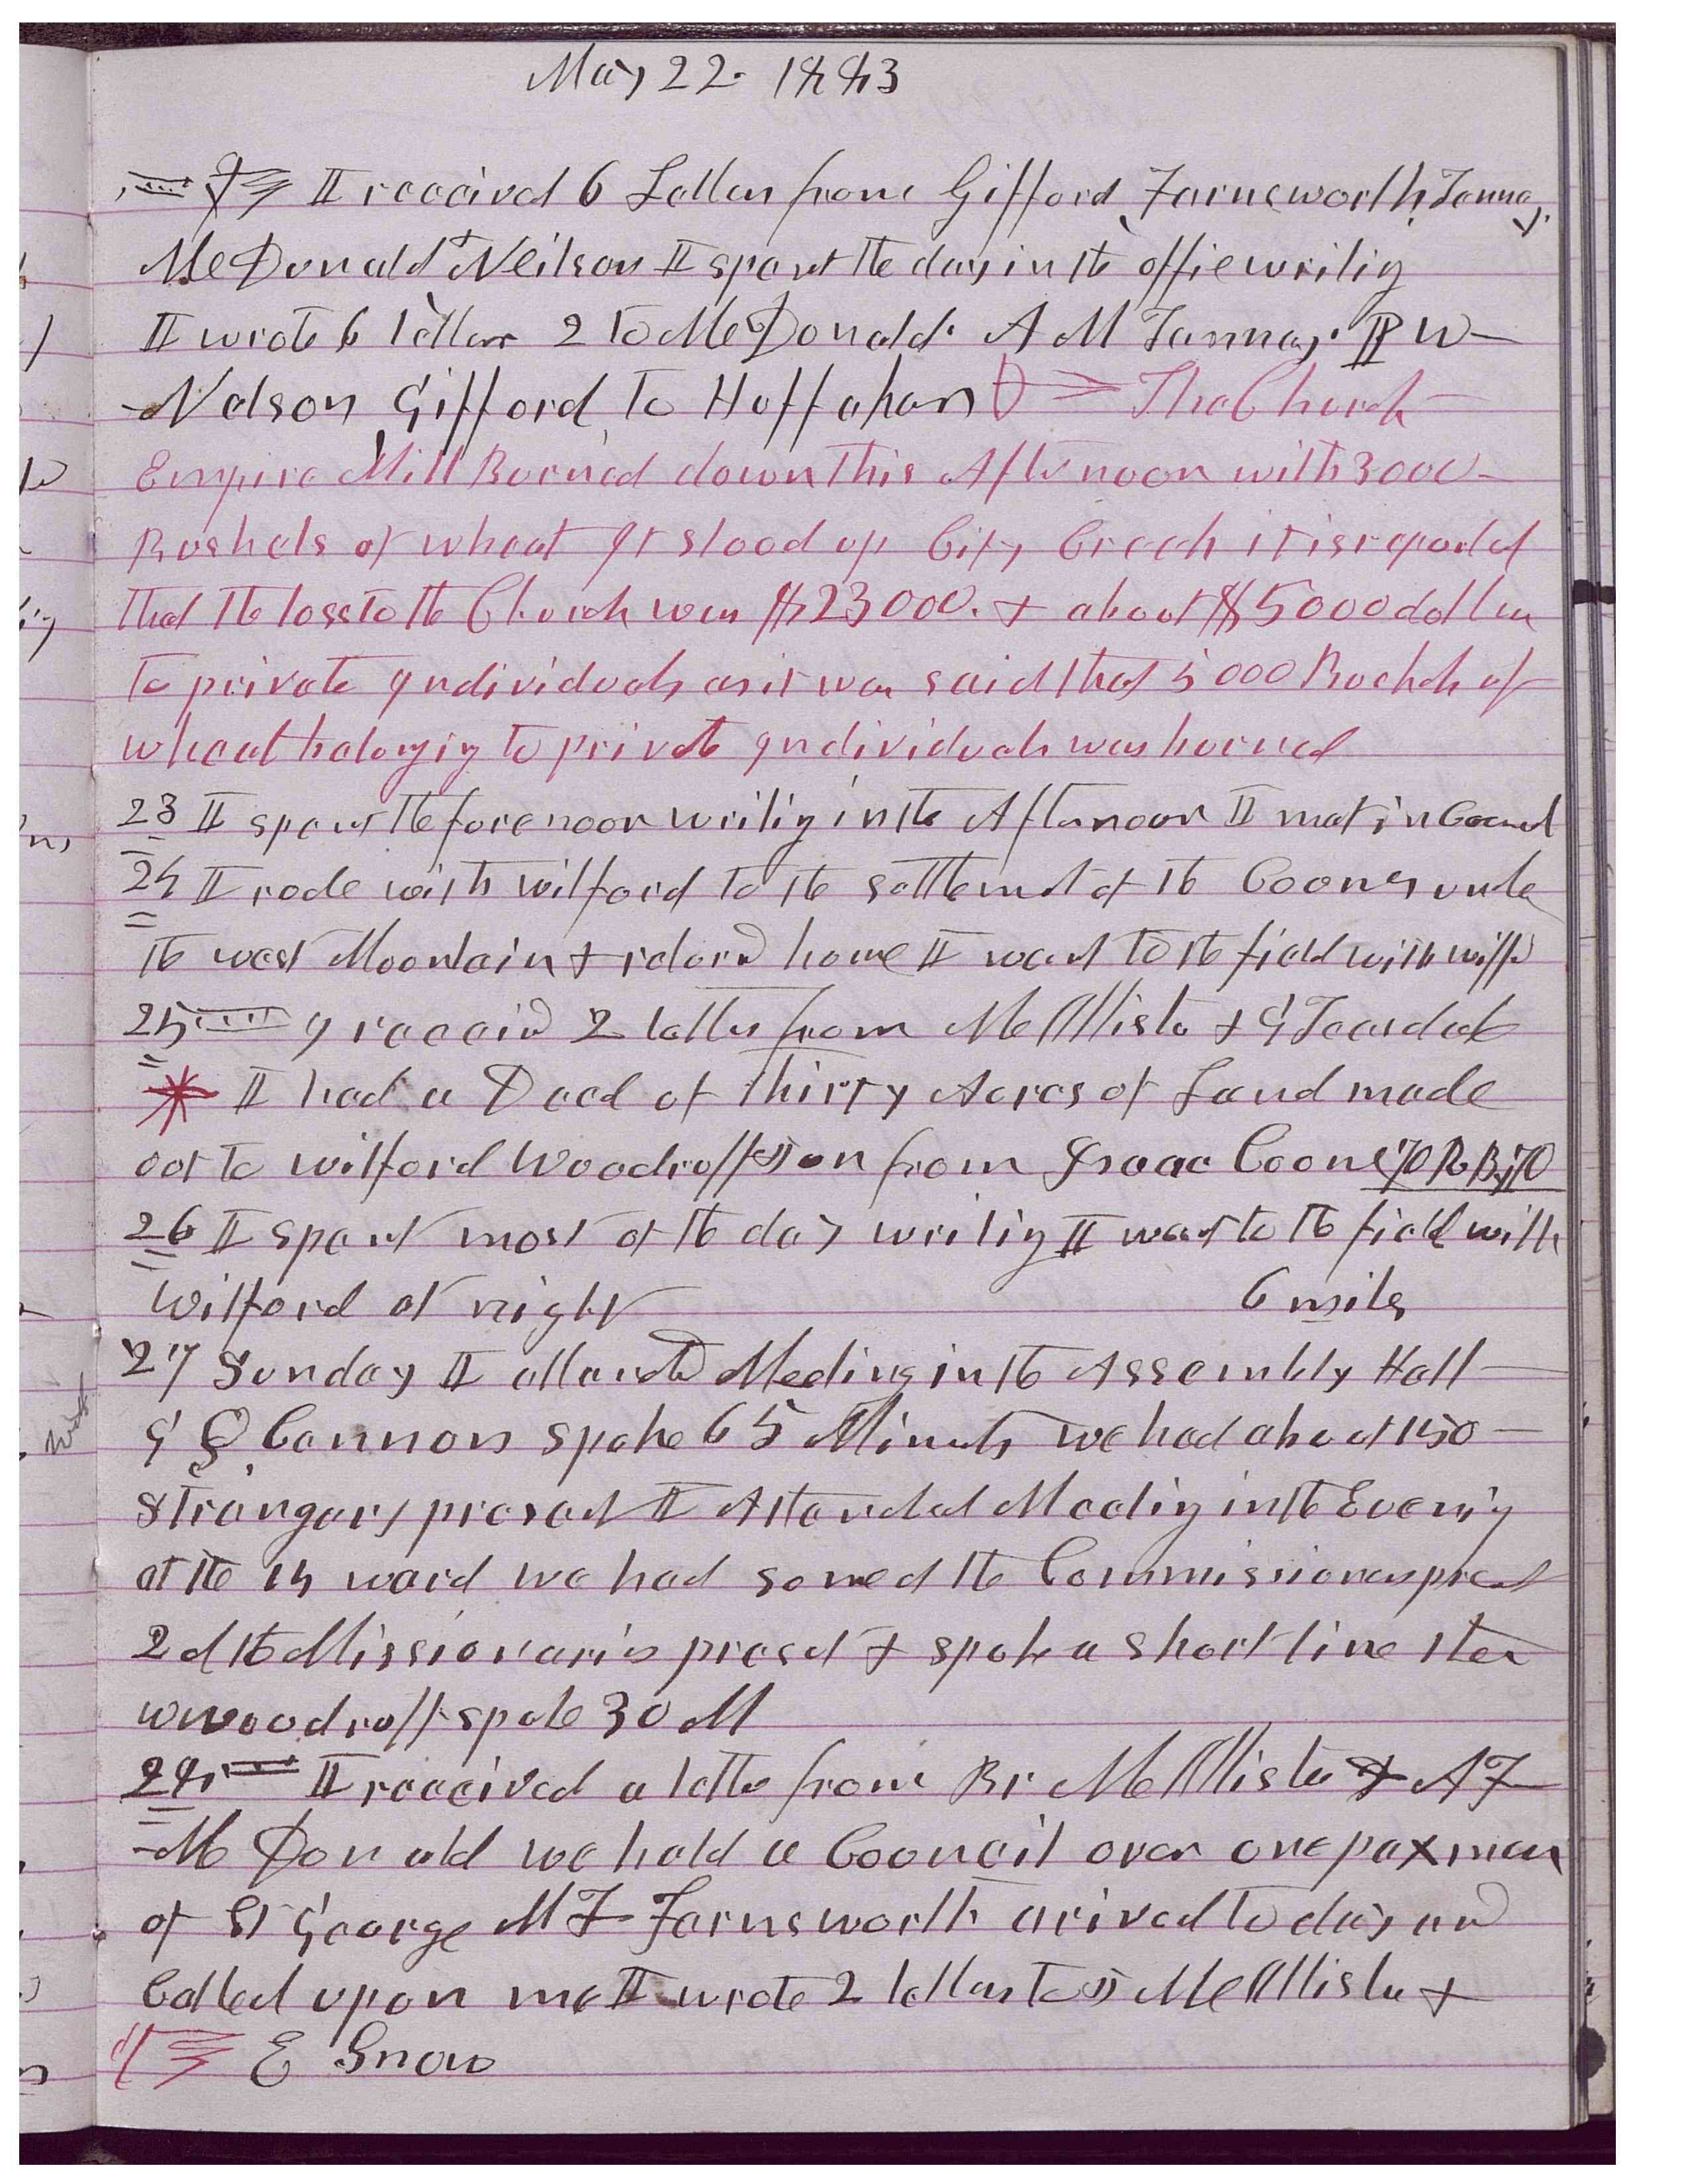 May 22. 1883
I received 6 Letters from Gifford, Farnsworth, Tenney,
McDonald + Neilson I spent the day in the office writing
I wrote 6 letters 2 to McDonald. A M Tenney. P W
Nelson, Gifford, to Huffaker The Church
Empire Mill Burned down this Afternoon with 3000
Bushels of wheat It stood up City Creek it is reported
that the loss to the Church was $23000. + about $5000 dollars
to private Individuals as it was said that 5000 Bushels of
wheat belonging to private Individuals was burned
23 I spent the forenoon writing in the Afternoon I met in Council
24 I rode with wilford to the settlement of the Coons under
the west Mountain + returnd home I went to the field with wilfd
25 I receivd 2 letters from McAllister + G Teasdale
I had a Deed of Thirty Acres of Land made
out to wilford Woodruff son from Isaac Coon
26 I spent most of the day writing I went to the field with
wilford at night 6 miles
27 Sunday I attended Meeting in the Assembly Hall
G Q Cannon spoke 65 Minuts we had about 150
Strangers present I Attended Meeting in the Evening
at the 14 ward we had some of the Commissioners present
2 of the Missionaries present + spoke a short time then
W Woodruff spoke 30 M
28 I received a letter from Br McAllister + A F
McDonald we held a Council over one paxman
of St George M F Farnsworth arived to day and
Called upon me I wrote 2 letters to McAllister +
E Snow